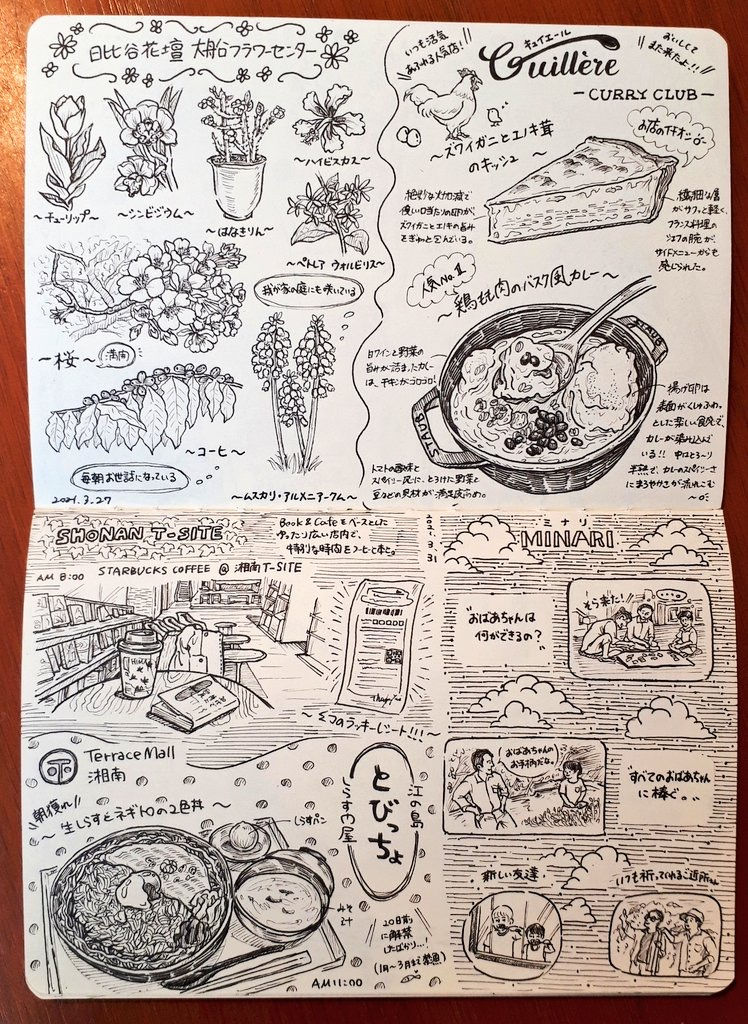 日比谷花壇 大船フラワーセンター
〜チューリップ〜
〜シンビジウム〜
〜はなきりん〜
〜ハイビスカス〜
〜ペトレア ウォルビリス〜
〜桜〜
満開
我が家の庭にも咲いている
〜コーヒー〜
毎朝お世話になっている
2021.3.27
〜ムスカリ・アルメニアークム〜
いつも活気
あふれる人気店!
キュイエール
Cuillère
おいしくて
また来たよ!!
- CURRY CLUB -
〜ズワイガニとエノキ茸
のキッシュ〜
お店のイチオシ
絶妙な火加減で
優しい口当たりの卵が、
ズワイガニとエノキの旨み
をぎゅっと包んでいる。
繊細な層
がサクッと軽く、
フランス料理の
シェフの腕が、
サイドメニューからも
感じられた。
人気No.1
〜鶏もも肉のバスク風カレー〜
白ワインと野菜の
旨みが詰まったカレー
は、チキンがゴロゴロ!
STAUB
STAUB
トマトの酸味と
スパイシー
とろけた野菜と
豆などの具材が満足度高め。
揚げ卵は
表面がくしゅふわっ
とした楽しい食感で、
カレーが染み込んで
いる!! 中はとろ〜り
半熟で、カレーのスパイシーさ
にまろやかさが流れこむ
SHONAN T-SITE
Book & Cafeをベースとした
ゆったり広い店内で、
特別な時間をコーヒーと本と。
AM 8:00
STARBUCKS COFFEE @ 湘南T-SITE
Thank You
〜幻のラッキーレシート!!!〜
Terrace Mall
湘南
朝獲れ!!
〜生しらすとネギトロの2色丼〜
しらすパン
みそ
汁
江の島
とびっちょ
しらす問屋
20日前
に解禁
したばかり…!
(1月〜3月まで禁漁)
AM11:00
2021.3.31
ミナリ
MINARI
"おばあちゃんは
何ができるの?"
そら来た!
おばあちゃんの
お手柄だな。
"すべてのおばあちゃん
に捧ぐ。"
新しい友達
いつも祈っていれるご近所さん